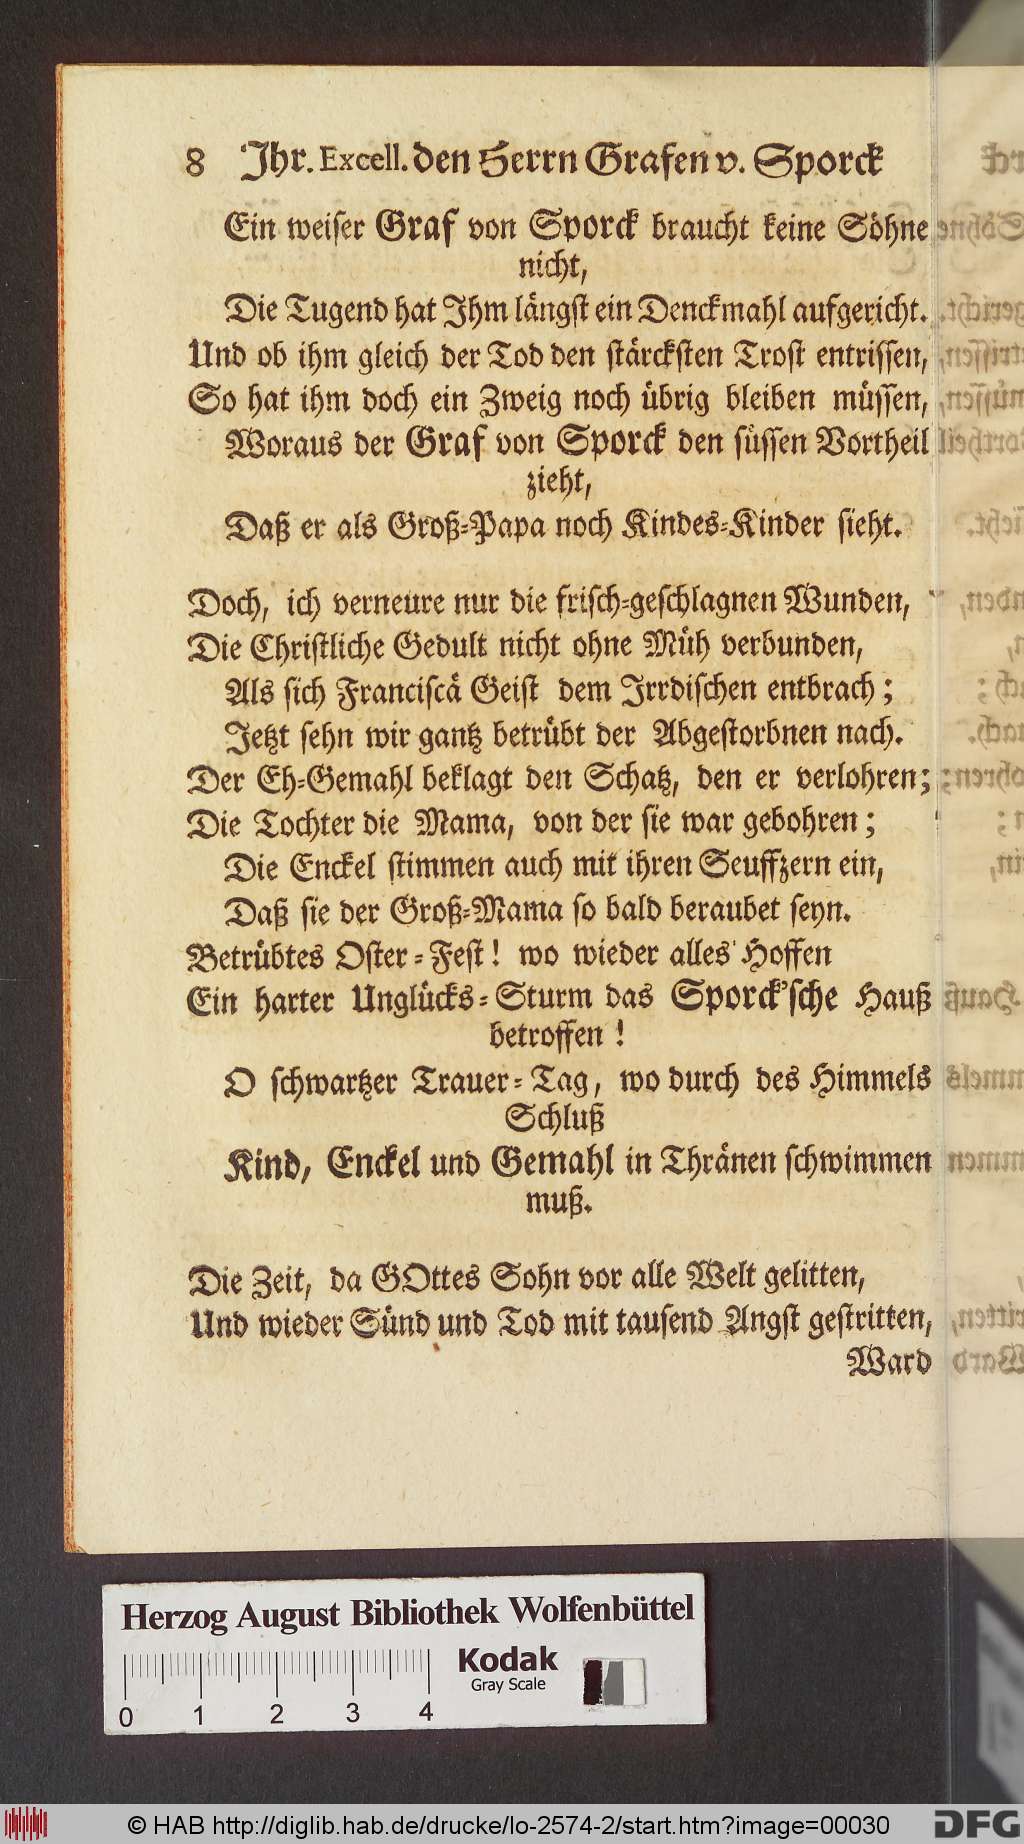 8 Ihr. Excell. den Herrn Grafen v. Sporck
Ein weiser Graf von Sporck braucht keine Söhne
nicht,
Die Tugend hat Ihm längst ein Denckmahl aufgericht.
Und ob ihm gleich der Tod den stärcksten Trost entrissen,
So hat ihm doch ein Zweig noch übrig bleiben müssen,
Woraus der Graf von Sporck den süssen Vortheil
zieht,
Daß er als Groß-Papa noch Kindes-Kinder sieht.
Doch, ich verneure nur die frisch-geschlagnen Wunden,
Die Christliche Gedult nicht ohne Müh verbunden,
Als sich Franciscä Geist dem Irrdischen entbrach;
Jetzt sehn wir gantz betrübt der Abgestorbnen nach.
Der Eh-Gemahl beklagt den Schatz, den er verlohren;
Die Tochter die Mama, von der sie war gebohren;
Die Enckel stimmen auch mit ihren Seuffzern ein,
Daß sie der Groß-Mama so bald beraubet seyn.
Betrübtes Oster-Fest! wo wieder alles Hoffen
Ein harter Unglücks-Sturm das Sporck'sche Hauß
betroffen!
O schwartzer Trauer-Tag, wo durch des Himmels
Schluß
Kind, Enckel und Gemahl in Thränen schwimmen
muß.
Die Zeit, da GOttes Sohn vor alle Welt gelitten,
Und wieder Sünd und Tod mit tausend Angst gestritten,
Ward
Herzog August Bibliothek Wolfenbüttel
Kodak
Gray Scale
0 1 2 3 4
© HAB http://diglib.hab.de/drucke/lo-2574-2/start.htm?image=00030
DFG